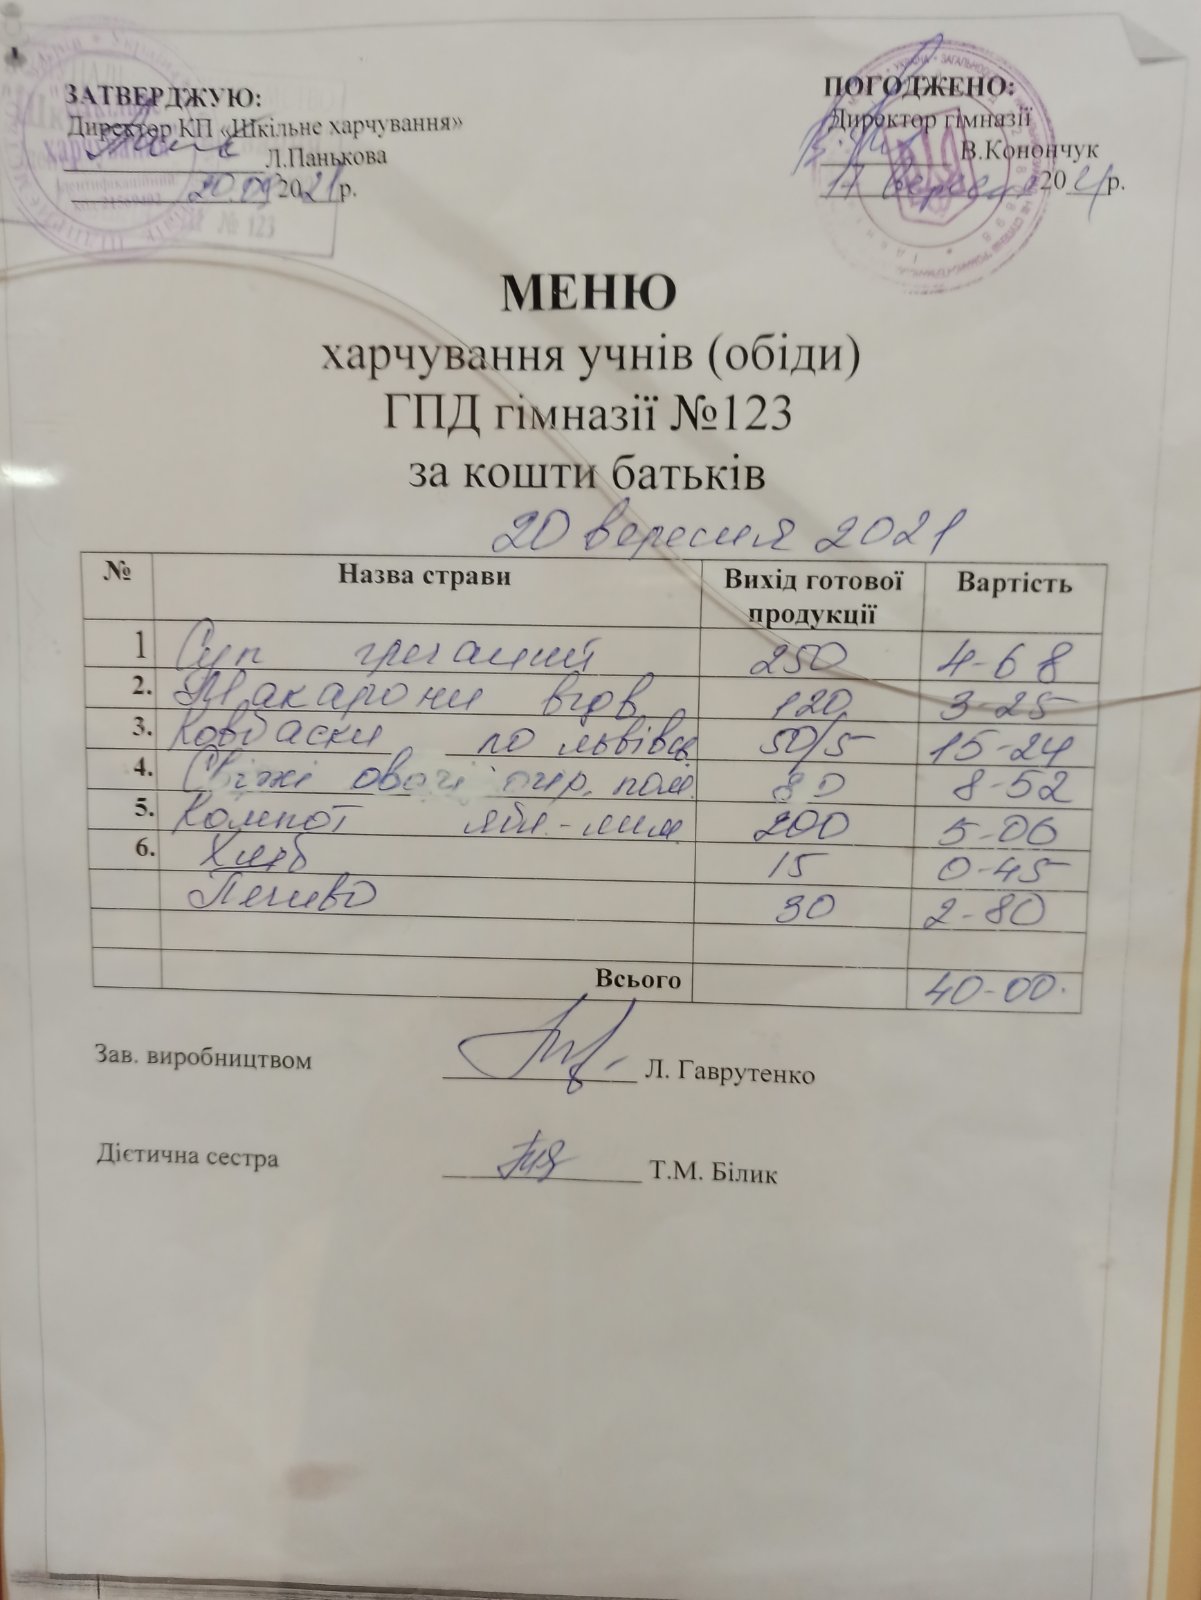 ЗАТВЕРДЖУЮ:
Директор КП «Шкільне харчування»
Л.Панькова
20.09 2021р.
ПОГОДЖЕНО:
Директор гімназії
В.Конончук
17 вересня 2021р.
МЕНЮ
харчування учнів (обіди)
ГПД гімназії №123
за кошти батьків
20 вересня 2021
№ Назва страви Вихід готової продукції Вартість
1 Суп гречаний 250 4-68
2. Макарони відв 120 3-25
3. Ковбаски по львівськ 50/5 15-24
4. Свіжі овочі огір. пом. 80 8-52
5. Компот ябл-лим 200 5-06
6. Хліб 15 0-45
Печиво 30 2-80
Всього 40-00.
Зав. виробництвом Л. Гаврутенко
Дієтична сестра Т.М. Білик